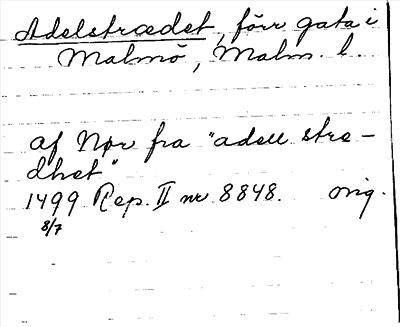 Adelstrædet, förr gata i
Malmö, Malm. l.
af Nør fra "adell stre-
dhet"
1499 Rep. II nr 8848. orig.
8/7